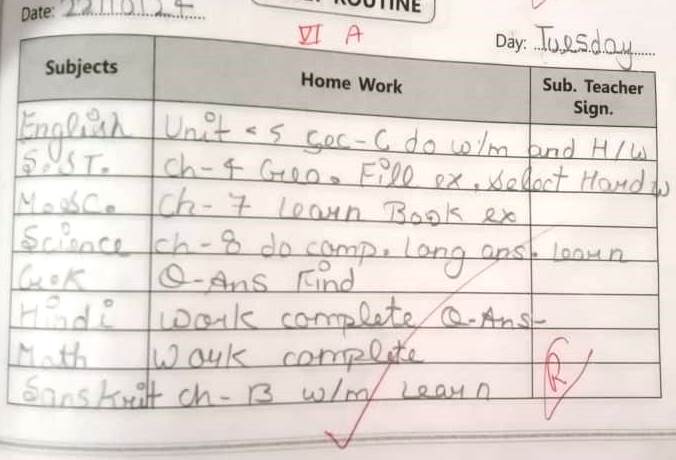 Date: 22/10/24
ROUTINE
VI A
Day: Tuesday
Subjects Home Work Sub. Teacher Sign.
English Unit < 5 sec-C do w/m and H/W
S.ST. ch-4 Geo. Fill ex, select Hard w
M.SC. Ch-7 learn Book ex
Science ch-8 do comp. long ans. learn
G.K Q-Ans Find
Hindi work complete Q-Ans-
Math Work complete
Sanskrit ch-13 w/m Learn
R